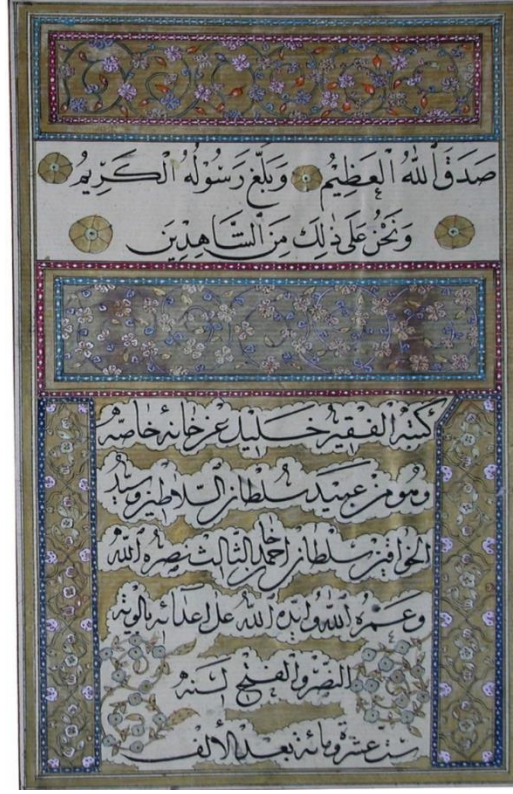 صَدَقَ ٱللّٰهُ ٱلْعَظِيْمُ وَبَلَّغَ رَسُوْلُهُ ٱلْكَرِيْمُ
وَنَحْنُ عَلَى ذٰلِكَ مِنَ ٱلشَّاهِدِيْنَ
كتبه الفقير خليل عن خانه خاصه
وهو من عبيد سلطان السلاطين وسيد
الخواقين سلطان احمد خان الثالث نصره الله
وعمره الله وايده الله على اعدائه
النصر والفتح لسنه
ست عشرة ومائة بعد الألف